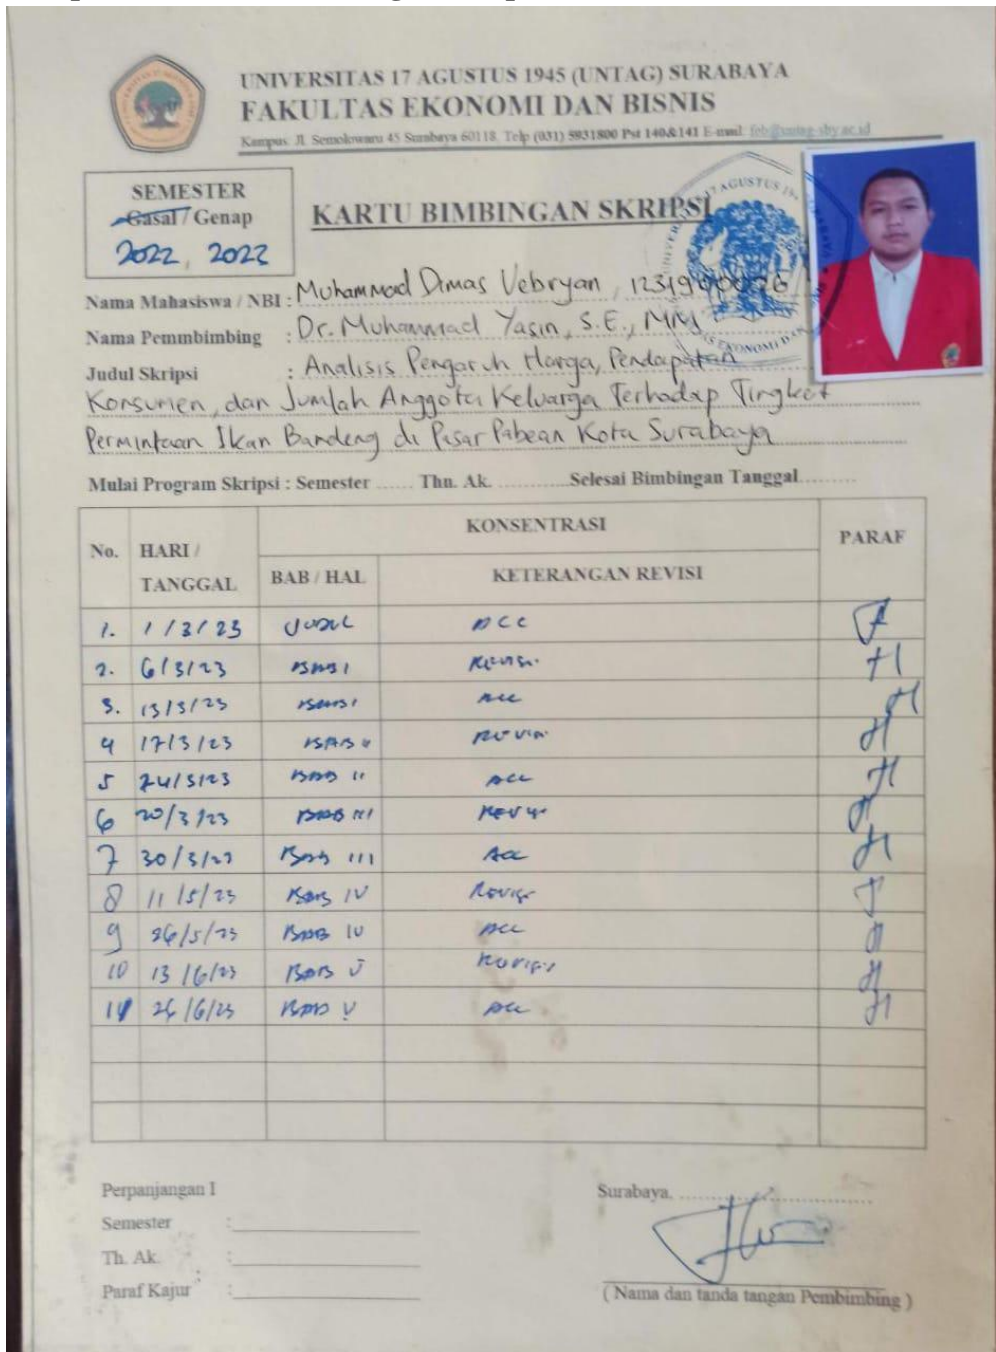 UNIVERSITAS 17 AGUSTUS 1945 (UNTAG) SURABAYA
FAKULTAS EKONOMI DAN BISNIS
Kampus: Jl. Semolowaru 45 Surabaya 60118. Telp (031) 5931800 Pst 140&141 E-mail: feb@untag-sby.ac.id
SEMESTER
Gasal / Genap
2022, 2022
KARTU BIMBINGAN SKRIPSI
Nama Mahasiswa / NBI : Muhammad Dimas Vebryan,
Nama Pemmbimbing : Dr. Muhammad Yasin, S.E., MM
Judul Skripsi : Analisis Pengaruh Harga, Pendapatan
Konsumen, dan Jumlah Anggota Keluarga Terhadap Tingkat
Permintaan Ikan Bandeng di Pasar Pabean Kota Surabaya
Mulai Program Skripsi : Semester ...... Thn. Ak. ............Selesai Bimbingan Tanggal.........
No. HARI / TANGGAL KONSENTRASI PARAF
BAB / HAL KETERANGAN REVISI
1. 1/3/23 JUDUL ACC
2. 6/3/23 BAB I Revisi
3. 13/3/23 BAB I ACC
4 17/3/23 BAB II Revisi
5 24/3/23 BAB II ACC
6 20/3/23 BAB III Revisi
7 30/3/23 BAB III ACC
8 11/5/23 BAB IV Revisi
9 26/5/23 BAB IV ACC
10 13/6/23 BAB V Revisi
11 26/6/23 BAB V ACC
Perpanjangan I
Semester :
Th. Ak. :
Paraf Kajur :
Surabaya, ........................
( Nama dan tanda tangan Pembimbing )